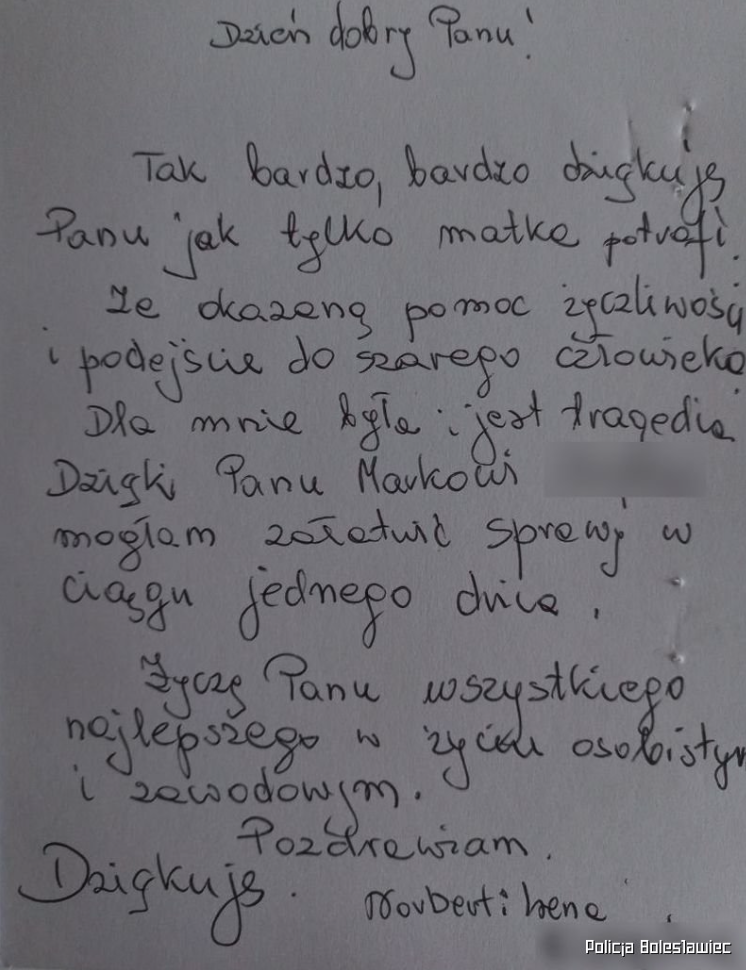 Dzień dobry Panu!
Tak bardzo, bardzo dziękuję
Panu jak tylko matka potrafi.
Ze okazaną pomoc życzliwość
i podejście do szarego człowieka.
Dla mnie była i jest tragedia
Dzięki Panu Markowi
mogłam załatwić sprawę w
ciągu jednego dnia.
Życzę Panu wszystkiego
najlepszego w życiu osobistym
i zawodowym.
Pozdrawiam.
Dziękuję. Norbert i Irena
Policja Bolesławiec